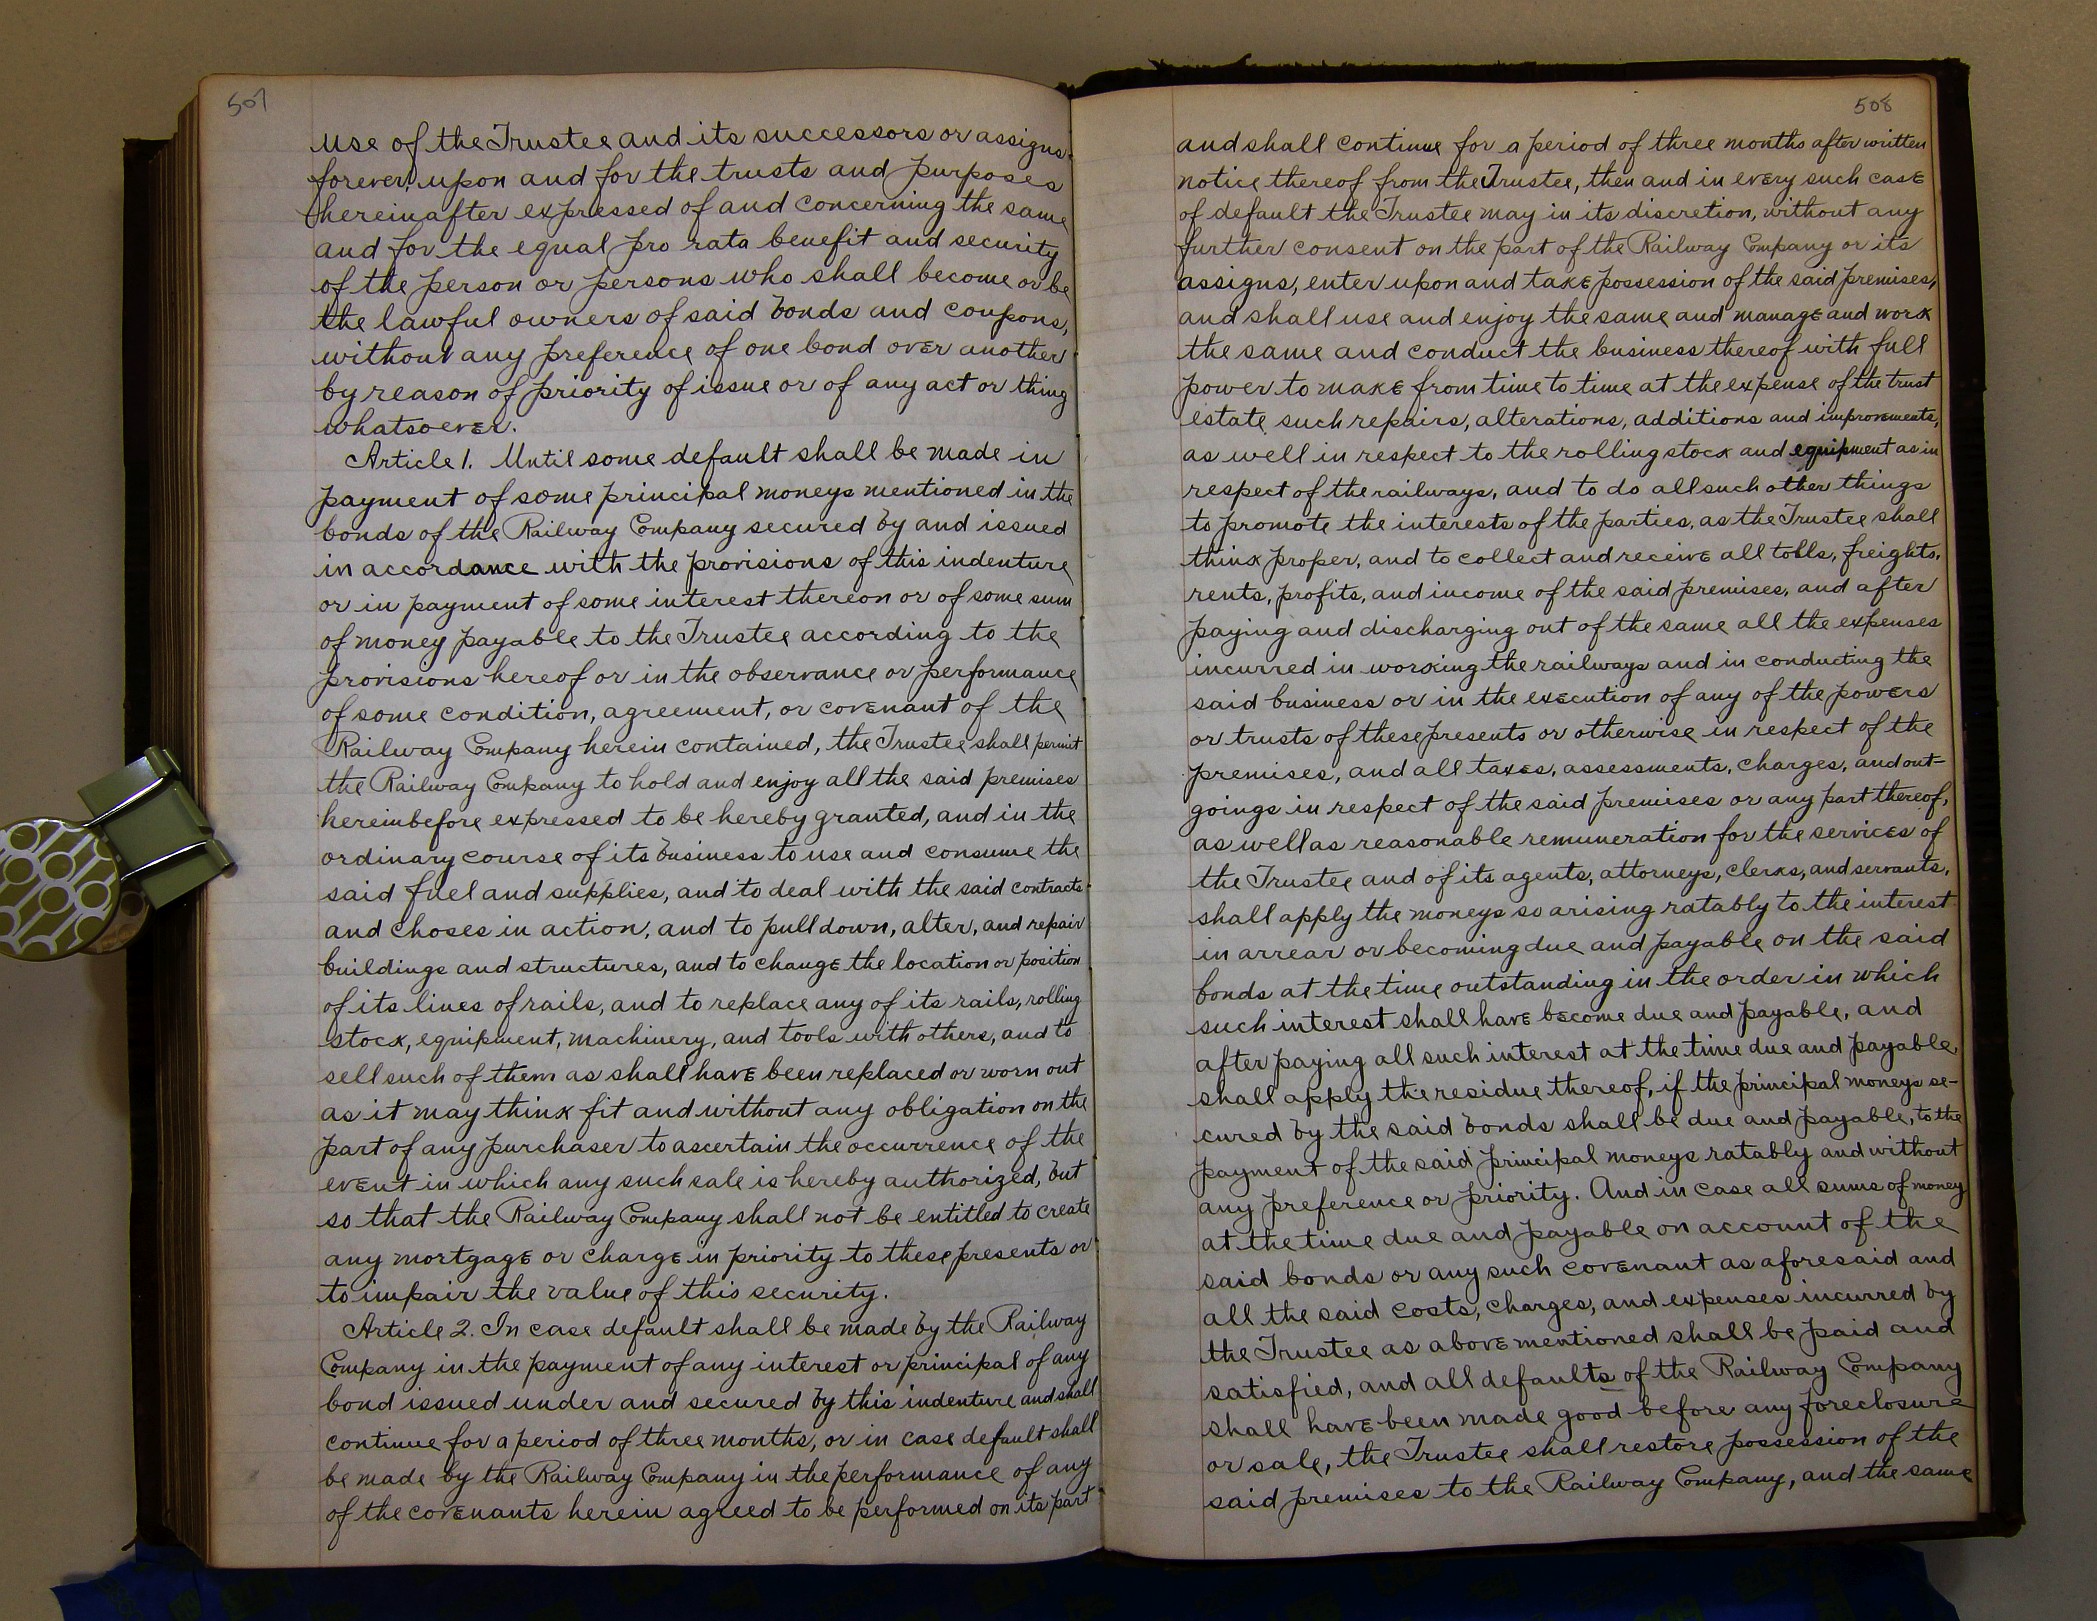 507
use of the Trustee and its successors or assigns
forever, upon and for the trusts and purposes
hereinafter expressed of and concerning the same
and for the equal pro rata benefit and security
of the person or persons who shall become or be
the lawful owners of said bonds and coupons,
without any preference of one bond over another
by reason of priority of issue or of any act or thing
whatsoever.
Article 1. Until some default shall be made in
payment of some principal moneys mentioned in the
bonds of the Railway Company secured by and issued
in accordance with the provisions of this indenture
or in payment of some interest thereon or of some sum
of money payable to the Trustee according to the
provisions hereof or in the observance or performance
of some condition, agreement, or covenant of the
Railway Company herein contained, the Trustee shall permit
the Railway Company to hold and enjoy all the said premises
hereinbefore expressed to be hereby granted, and in the
ordinary course of its business to use and consume the
said fuel and supplies, and to deal with the said contracts
and choses in action, and to pull down, alter, and repair
buildings and structures, and to change the location or position
of its lines of rails, and to replace any of its rails, rolling
stock, equipment, machinery, and tools with others, and to
sell such of them as shall have been replaced or worn out
as it may think fit and without any obligation on the
part of any purchaser to ascertain the occurrence of the
event in which any such sale is hereby authorized, but
so that the Railway Company shall not be entitled to create
any mortgage or charge in priority to these presents or
to impair the value of this security.
Article 2. In case default shall be made by the Railway
Company in the payment of any interest or principal of any
bond issued under and secured by this indenture and shall
continue for a period of three months, or in case default shall
be made by the Railway Company in the performance of any
of the covenants herein agreed to be performed on its part
508
and shall continue for a period of three months after written
notice thereof from the Trustee, then and in every such case
of default the Trustee may in its discretion, without any
further consent on the part of the Railway Company or its
assigns, enter upon and take possession of the said premises,
and shall use and enjoy the same and manage and work
the same and conduct the business thereof with full
power to make from time to time at the expense of the trust
estate such repairs, alterations, additions and improvements,
as well in respect to the rolling stock and equipment as in
respect of the railways, and to do all such other things
to promote the interests of the parties, as the Trustee shall
think proper, and to collect and receive all tolls, freights,
rents, profits, and income of the said premises, and after
paying and discharging out of the same all the expenses
incurred in working the railways and in conducting the
said business or in the execution of any of the powers
or trusts of these presents or otherwise in respect of the
premises, and all taxes, assessments, charges, and out-
goings in respect of the said premises or any part thereof,
as well as reasonable remuneration for the services of
the Trustee and of its agents, attorneys, clerks, and servants,
shall apply the moneys so arising ratably to the interest
in arrear or becoming due and payable on the said
bonds at the time outstanding in the order in which
such interest shall have become due and payable, and
after paying all such interest at the time due and payable,
shall apply the residue thereof, if the principal moneys se-
cured by the said bonds shall be due and payable, to the
payment of the said principal moneys ratably and without
any preference or priority. And in case all sums of money
at the time due and payable on account of the
said bonds or any such covenant as aforesaid and
all the said costs, charges, and expenses incurred by
the Trustee as above mentioned shall be paid and
satisfied, and all defaults of the Railway Company
shall have been made good before any foreclosure
or sale, the Trustee shall restore possession of the
said premises to the Railway Company, and the same